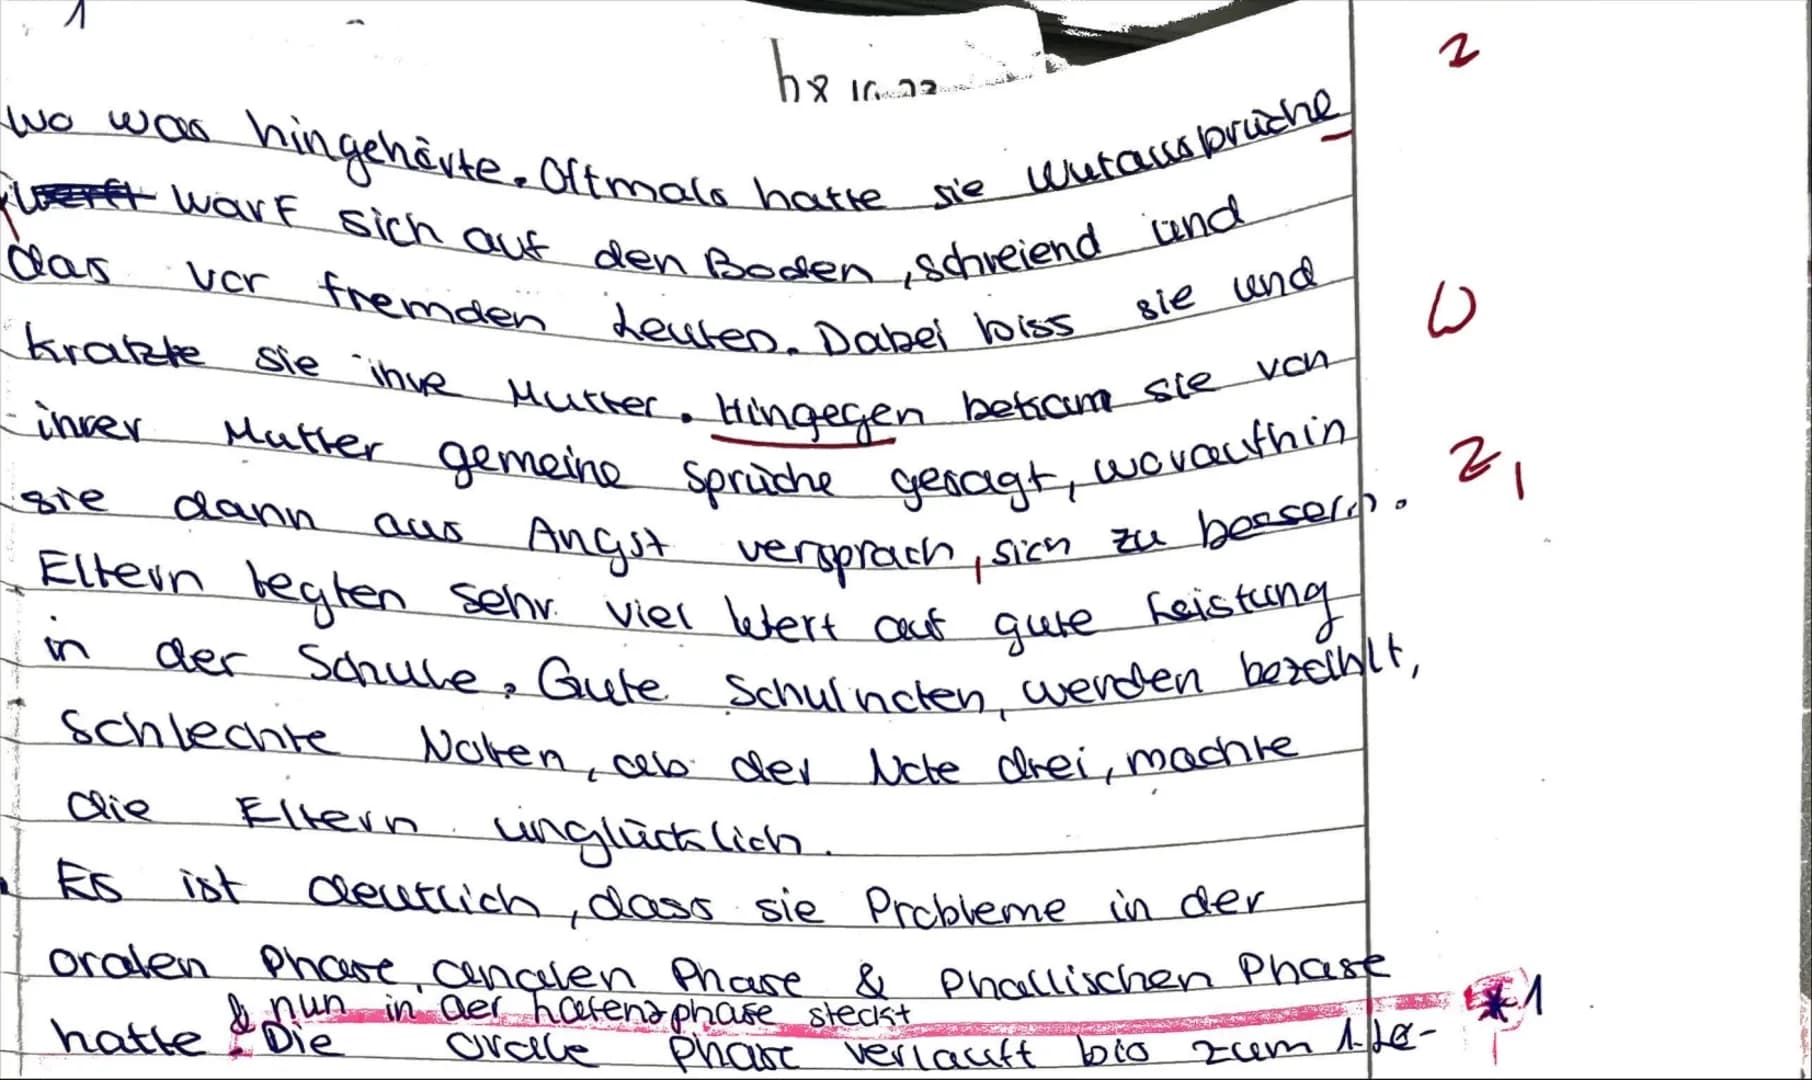 1
2
wo was hingehörte. Oftmals hatte sie Wutaussprüche
warf sich auf den Boden, schreiend und
das vor fremden Leuten. Dabei biss sie und
W
kratzte sie ihre Mutter. Hingegen bekam sie von
ihrer Mutter gemeine Sprüche gesagt, woraufhin
Z,
sie dann aus Angst versprach, sich zu bessern.
Eltern legten sehr viel Wert auf gute Leistung
in der Schule. Gute Schulnoten, werden bezahlt,
schlechte Noten, ab der Note drei, machte
die Eltern unglücklich.
Es ist deutlich, dass sie Probleme in der
oralen Phase, analen Phase & Phallischen Phase
& nun in der Latenzphase steckt *1
hatte. Die orale Phase verläuft bis zum 1. Le-